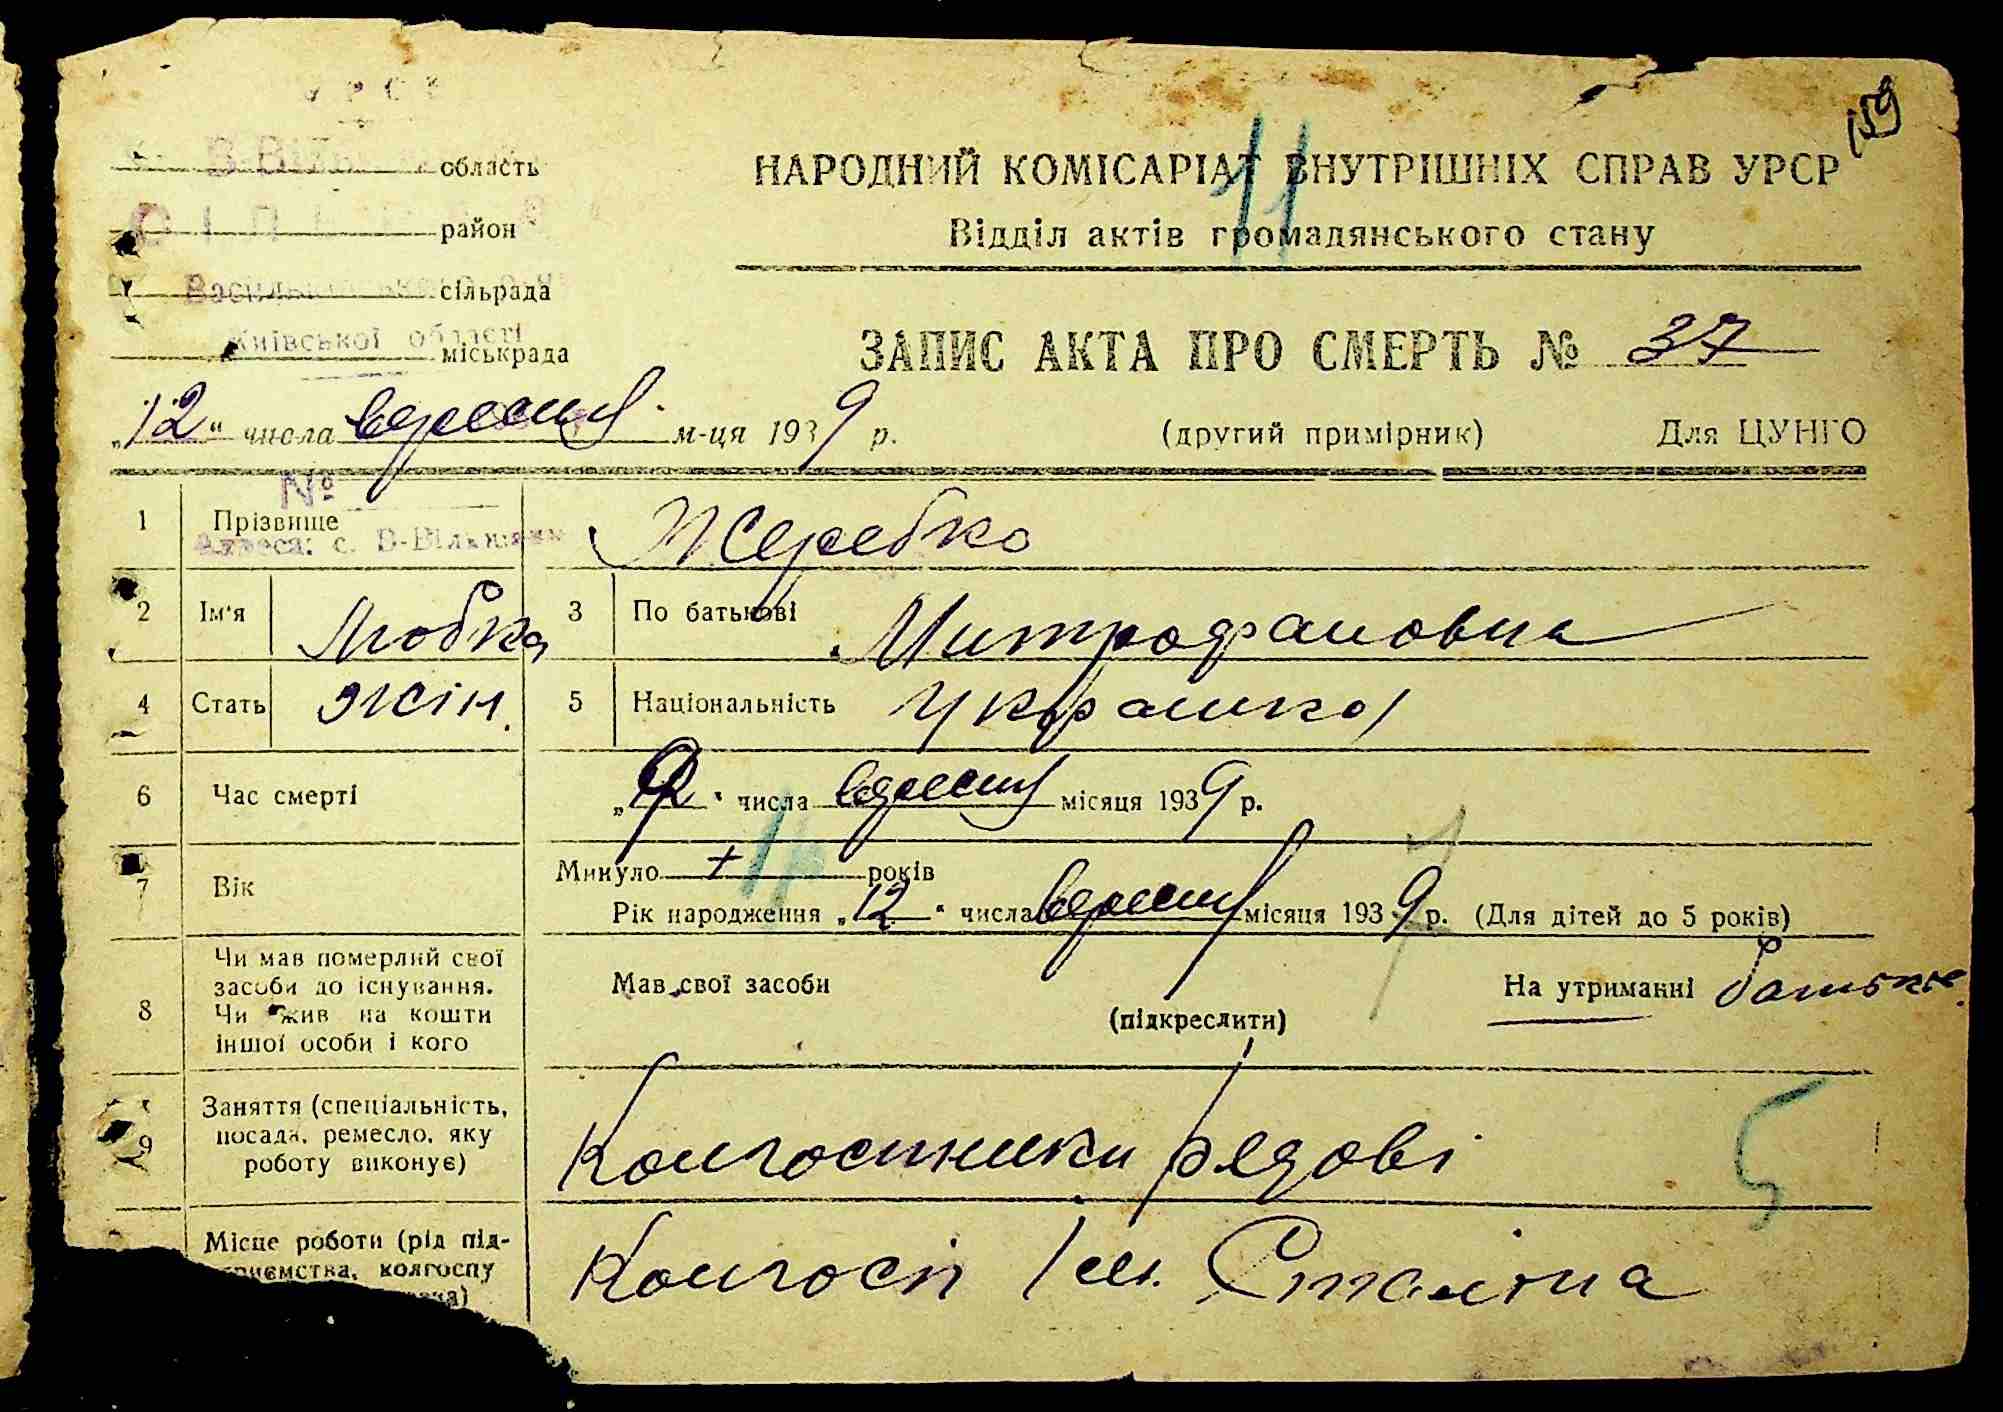 УРСР
159
В-Вільшан область
НАРОДНИЙ КОМІСАРІАТ ВНУТРІШНІХ СПРАВ УРСР
11
район
Відділ актів громадянського стану
сільрада
Київської області
міськрада
ЗАПИС АКТА ПРО СМЕРТЬ № 37
„12“ числа вересня м-ця 1939 р. (другий примірник) Для ЦУНГО
№
1 Прізвище Жеребко
Адреса: с. В-Вільшан
2 Ім'я Любка 3 По батькові Митрофановна
4 Стать жін. 5 Національність Українка
6 Час смерті „12“ числа вересня місяця 1939 р.
7 Вік Минуло + років
Рік народження „12“ числа вересня місяця 1939 р. (Для дітей до 5 років)
8 Чи мав померлий свої засоби до існування. Чи жив на кошти іншої особи і кого
Мав свої засоби (підкреслити) На утриманні батьків
9 Заняття (спеціальність, посада, ремесло, яку роботу виконує) Колгоспники рядові
5
Місце роботи (рід підприємства, колгоспу Колгосп ім. Сталіна